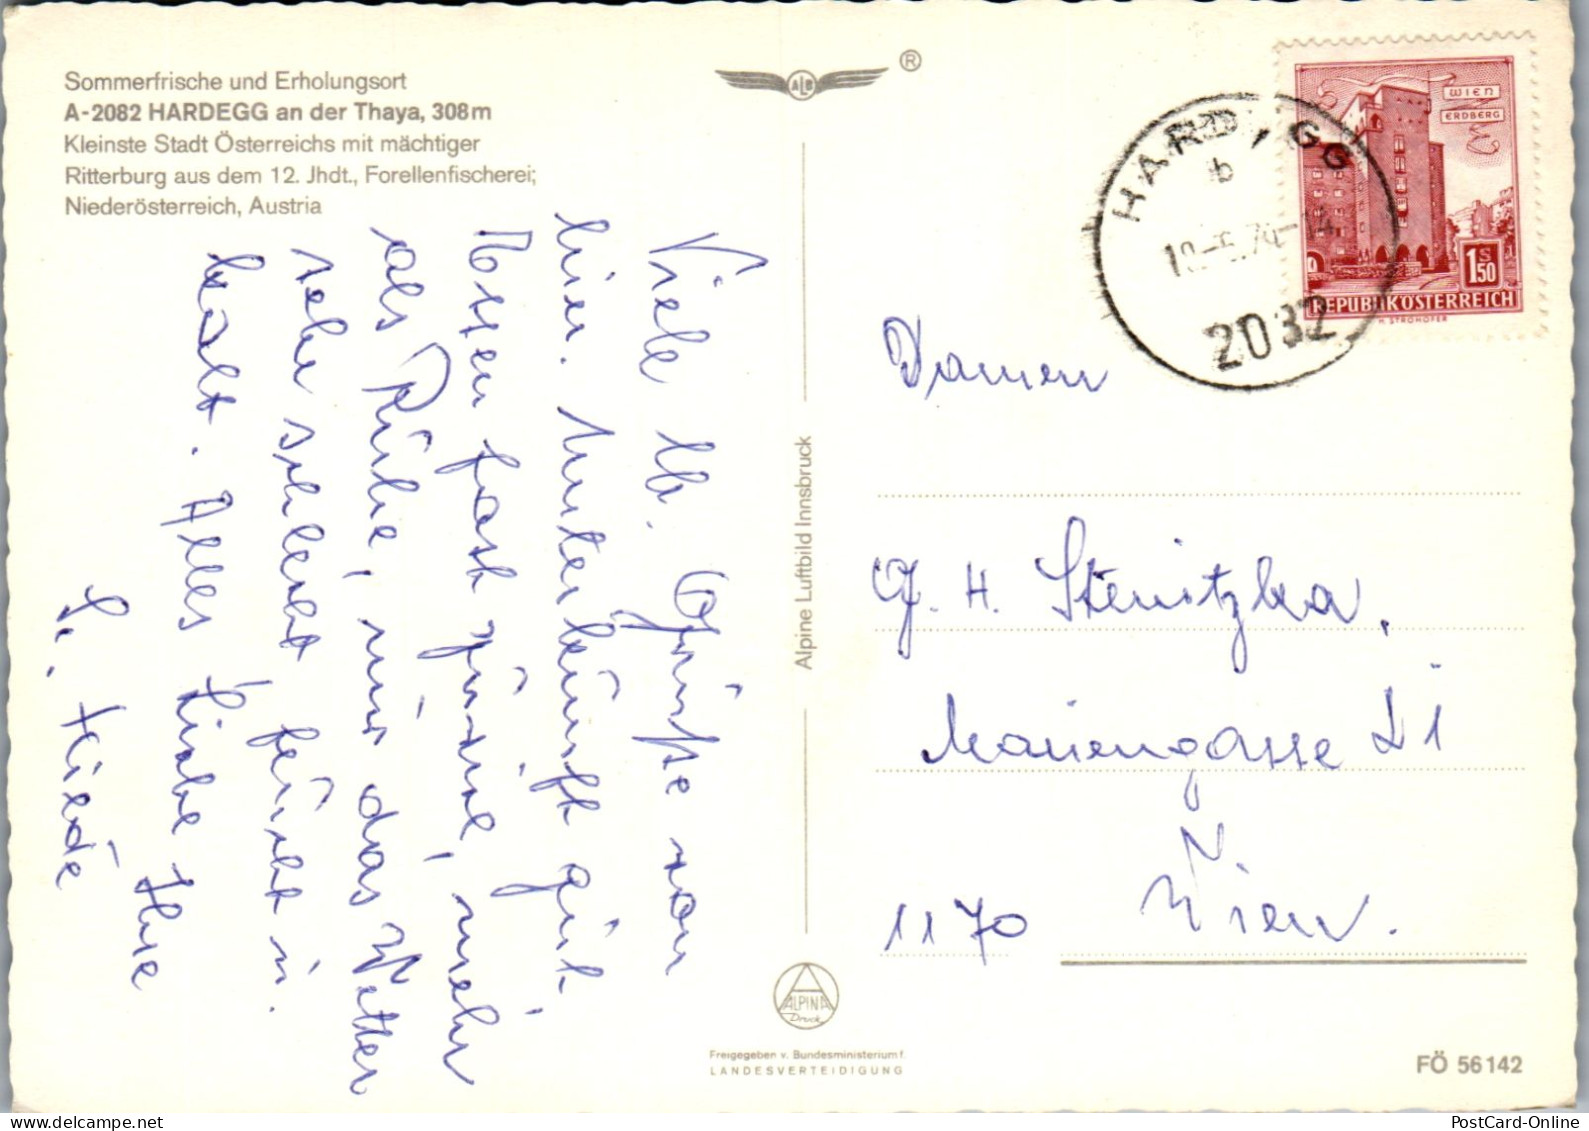 Sommerfrische und Erholungsort
A-2082 HARDEGG an der Thaya, 308m
Kleinste Stadt Österreichs mit mächtiger
Ritterburg aus dem 12. Jhdt., Forellenfischerei;
Niederösterreich, Austria
Viele lb. Grüße von
hier. Unterkunft gut
Essen fast prima, mehr
als Ruhe, nur das Wetter
sehr schlecht feucht u.
kalt. Alles Liebe Ihre
ALB
®
Alpine Luftbild Innsbruck
ALPINA
Druck
Freigegeben v. Bundesministerium f.
LANDESVERTEIDIGUNG
HARDEGG
b
2082
WIEN
ERDBERG
S
150
REPUBLIK ÖSTERREICH
H. STROHOFER
Damen
G. H. Stenitzka.
Mariengasse 21
1170 Wien.
FÖ 56142
PostCard-Online.com